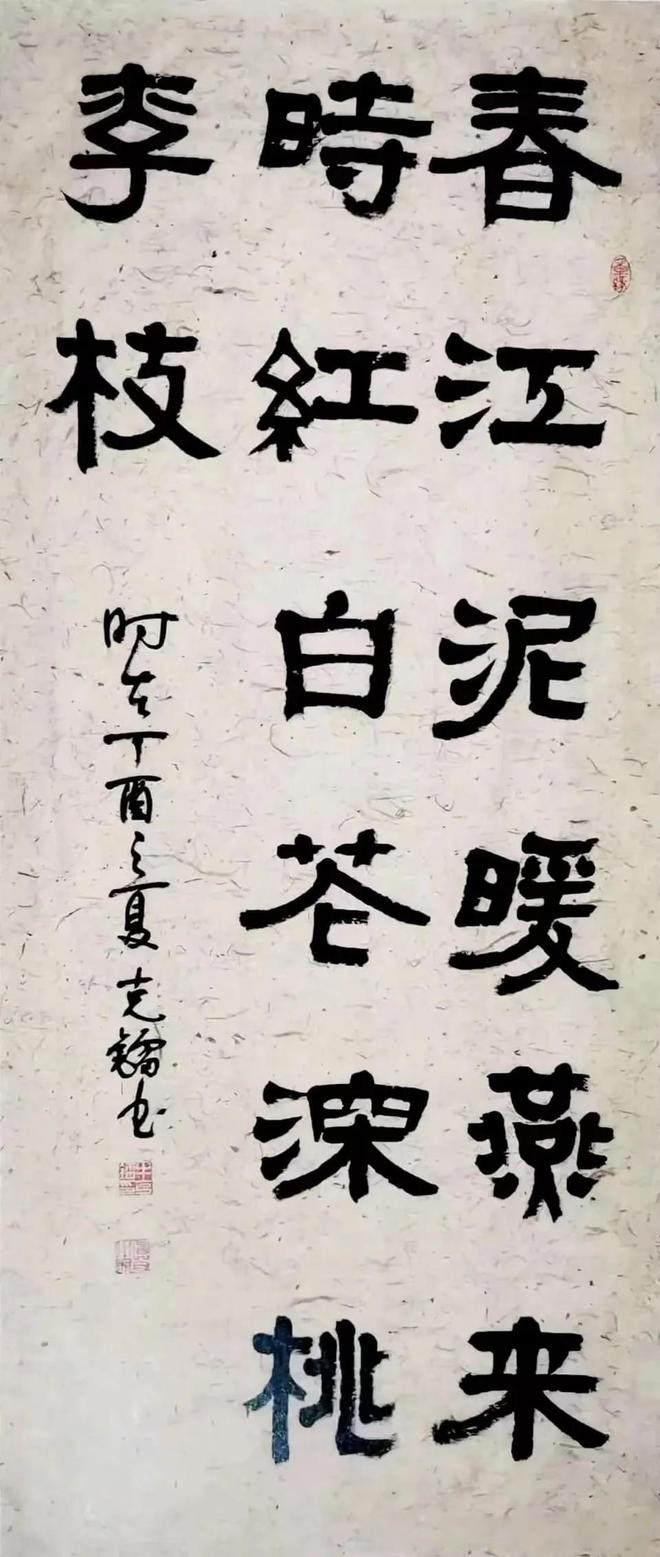 春江泥暖燕来
時紅白花深桃
李枝
时在丁酉之夏克鐳书